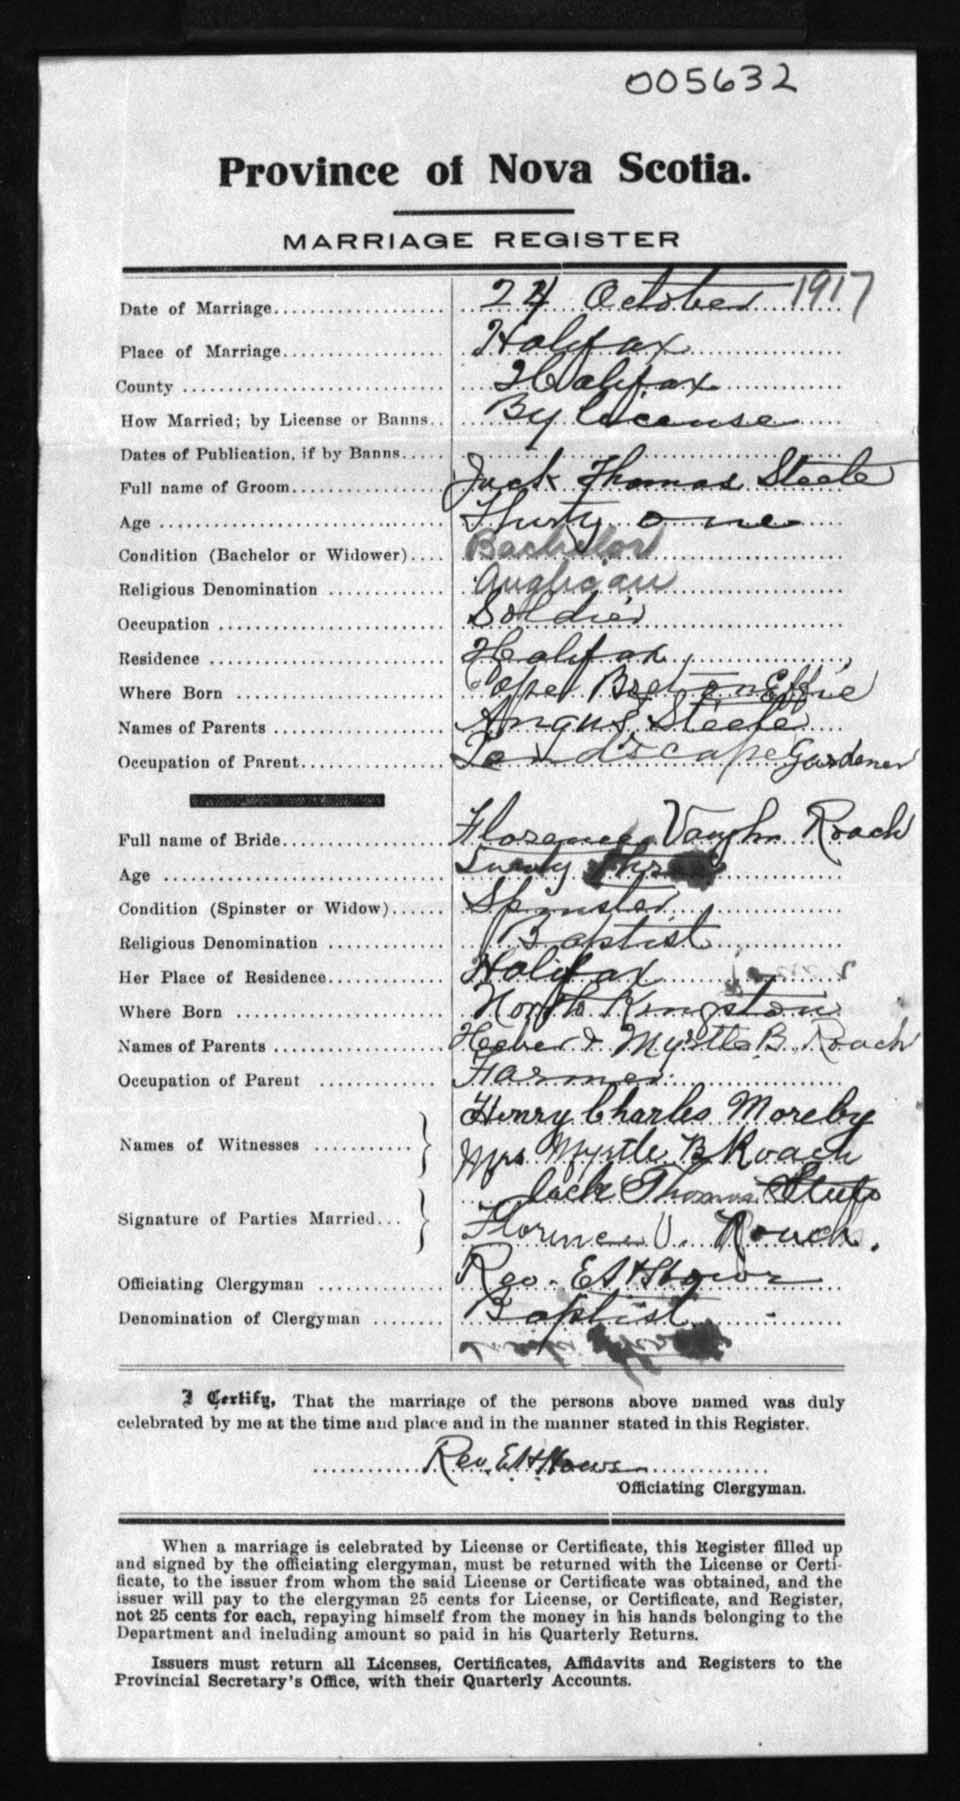 005632
Province of Nova Scotia.
MARRIAGE REGISTER
Date of Marriage 24 October 1917
Place of Marriage Halifax
County Halifax
How Married; by License or Banns By license
Dates of Publication, if by Banns
Full name of Groom Jack Thomas Steele
Age Thirty one
Condition (Bachelor or Widower) Bachelor
Religious Denomination Anglican
Occupation Soldier
Residence Halifax
Where Born Cape Breton
Names of Parents Angus Steele Effie
Occupation of Parent Landscape Gardener
Full name of Bride Florence Vaughn Roach
Age Twenty Three
Condition (Spinster or Widow) Spinster
Religious Denomination Baptist
Her Place of Residence Halifax
Where Born North Kingston
Names of Parents Heber & Myrtle B. Roach
Occupation of Parent Farmer
Names of Witnesses Henry Charles Moreby
Mrs Myrtle B Roach
Signature of Parties Married Jack Thomas Steele
Florence V. Roach.
Officiating Clergyman Rev. E
Denomination of Clergyman Baptist
I Certify, That the marriage of the persons above named was duly
celebrated by me at the time and place and in the manner stated in this Register.
Rev. E H Howe
Officiating Clergyman.
When a marriage is celebrated by License or Certificate, this Register filled up
and signed by the officiating clergyman, must be returned with the License or Certi-
ficate, to the issuer from whom the said License or Certificate was obtained, and the
issuer will pay to the clergyman 25 cents for License, or Certificate, and Register,
not 25 cents for each, repaying himself from the money in his hands belonging to the
Department and including amount so paid in his Quarterly Returns.
Issuers must return all Licenses, Certificates, Affidavits and Registers to the
Provincial Secretary's Office, with their Quarterly Accounts.